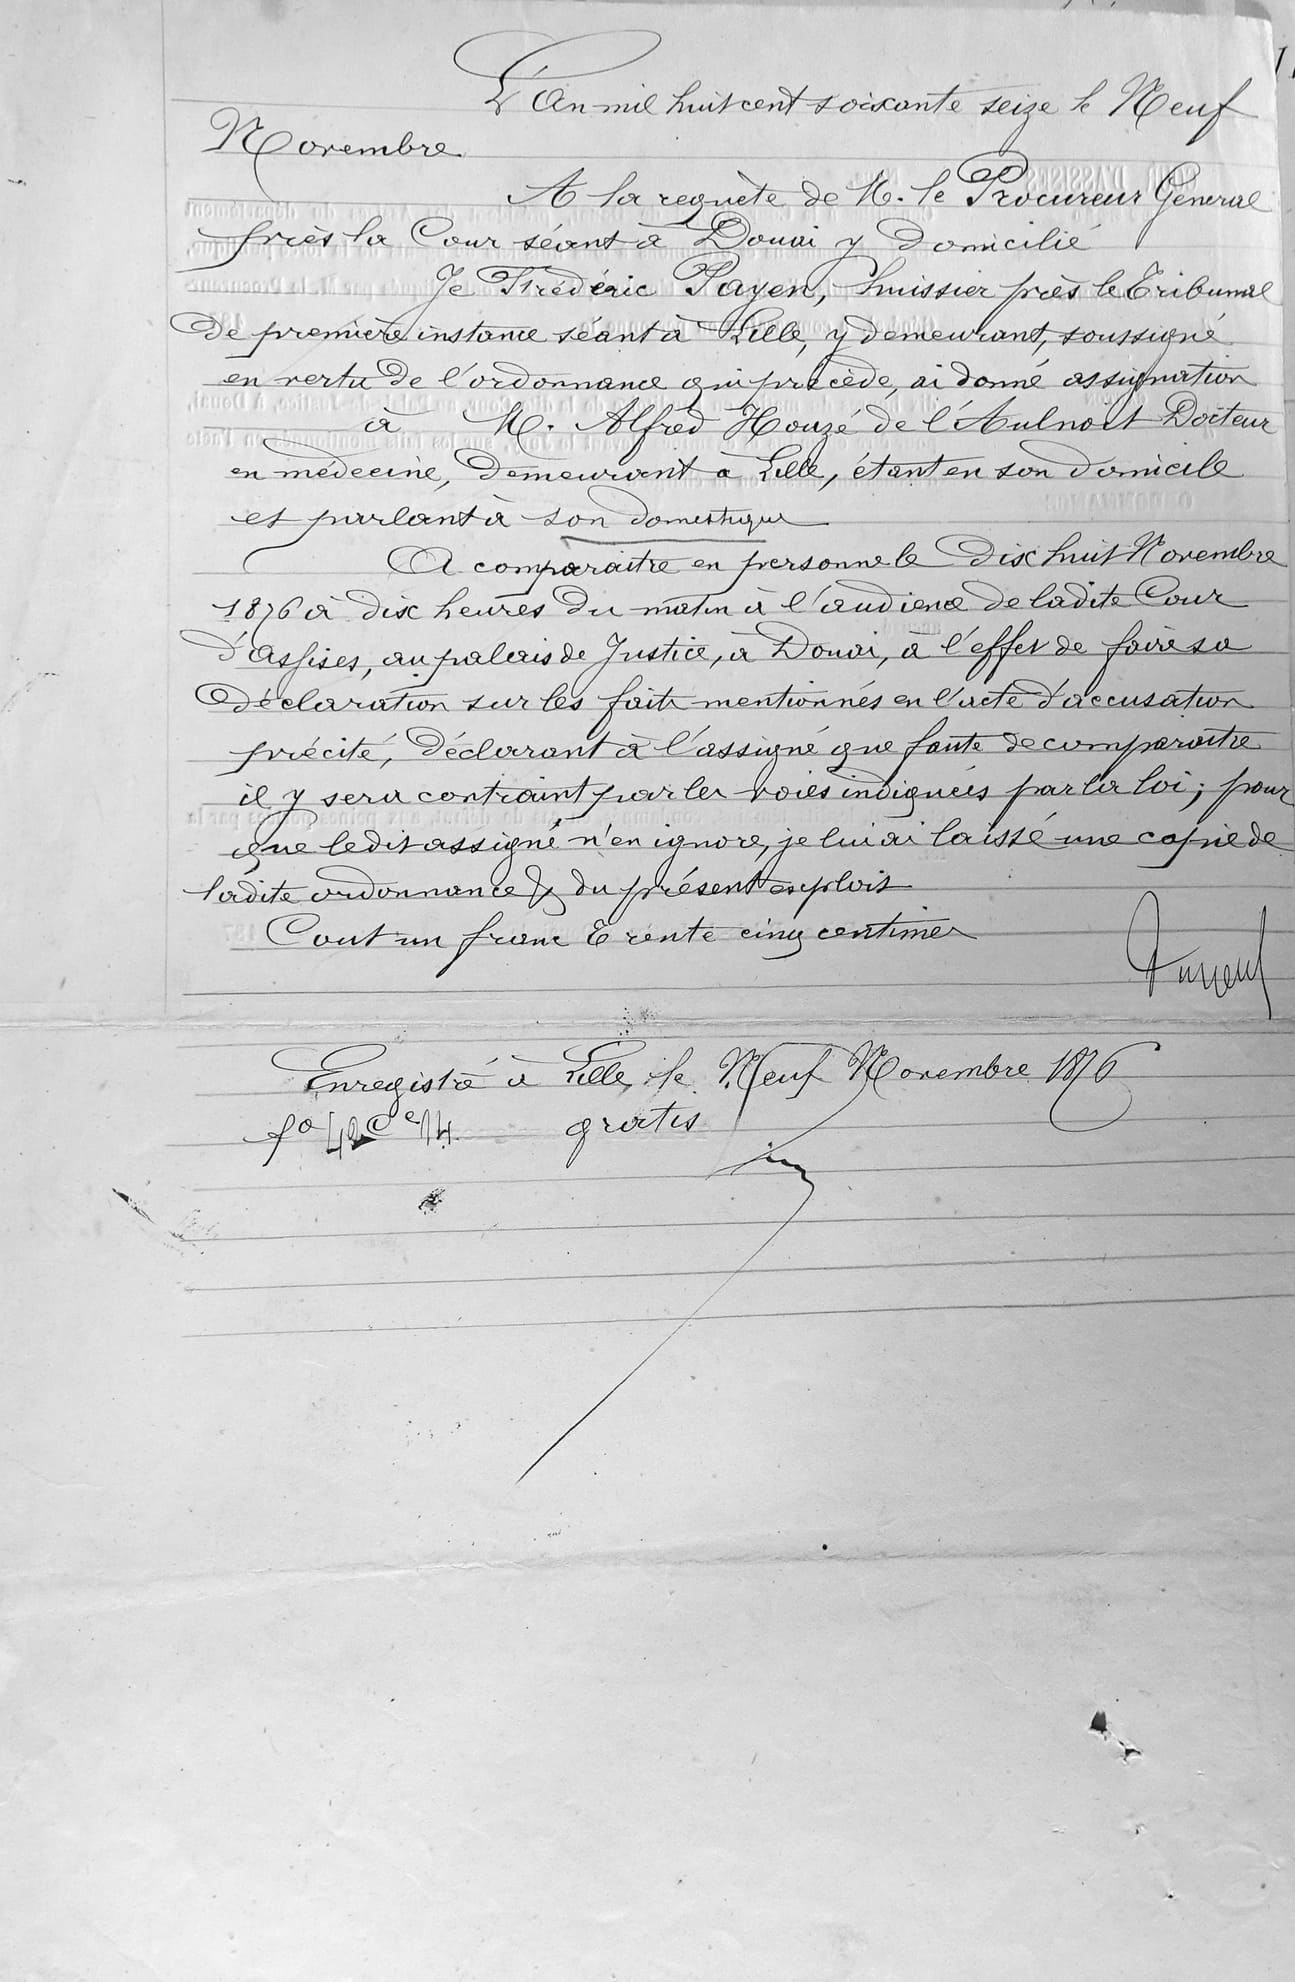 L'An mil huit cent soixante seize le Neuf
Novembre
A la requête de M. le Procureur Général
près la Cour séant à Douai y domicilié
Je Frédéric Payen, huissier près le Tribunal
de première instance séant à Lille, y demeurant, soussigné
en vertu de l'ordonnance qui précède, ai donné assignation
à M. Alfred Houzé de l'Aulnoit Docteur
en médecine, demeurant à Lille, étant en son domicile
et parlant à son domestique
A comparaitre en personne le Dix huit Novembre
1876 à dix heures du matin à l'audience de ladite Cour
d'Assises, au palais de Justice, à Douai, à l'effet de faire sa
déclaration sur les faits mentionnés en l'acte d'accusation
précité, déclarant à l'assigné que faute de comparaitre
il y sera contraint par les voies indiquées par la loi; pour
que ledit assigné n'en ignore, je lui ai laissé une copie de
ladite ordonnance & du présent exploit
Cout un franc Trente cinq centimes
Enregistré à Lille, le Neuf Novembre 1876
fo 42 Ce 14. gratis